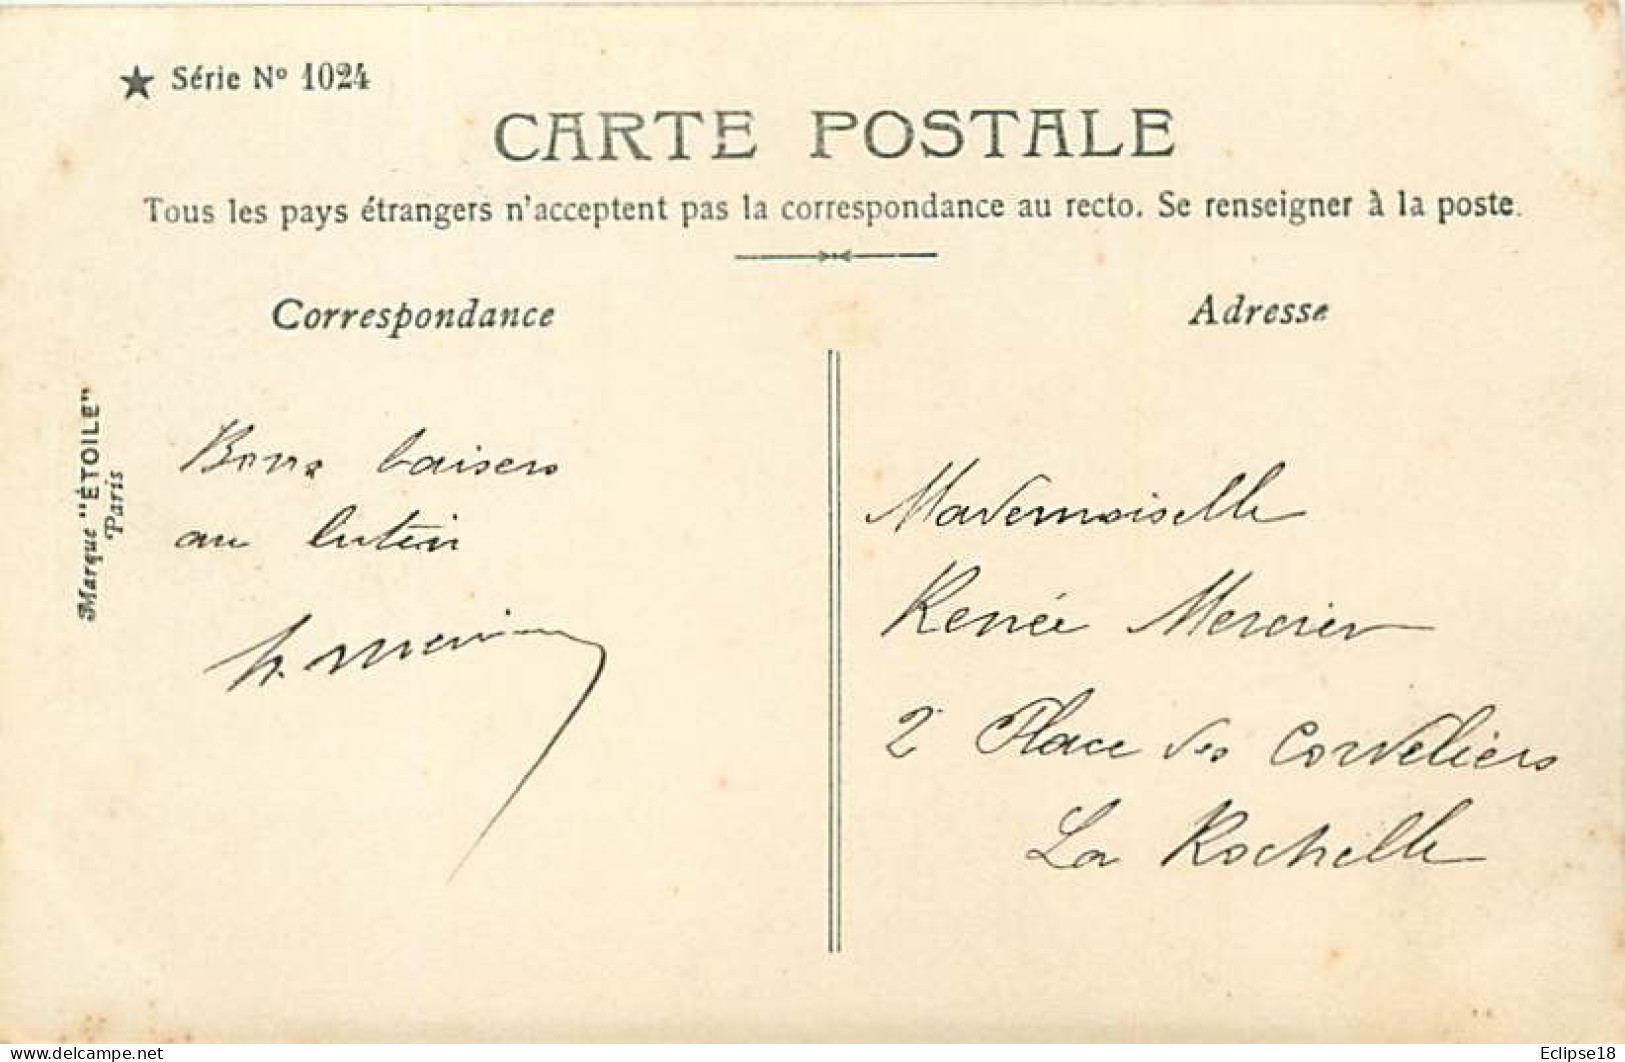 ★ Série Nº 1024
CARTE POSTALE
Tous les pays étrangers n'acceptent pas la correspondance au recto. Se renseigner à la poste.
Correspondance
Marque "ÉTOILE"
Paris
Bons baisers
au lutin
Adresse
Mademoiselle
Renée Mercier
2 Place des Cordeliers
La Rochelle
delcampe.net
Eclipse18